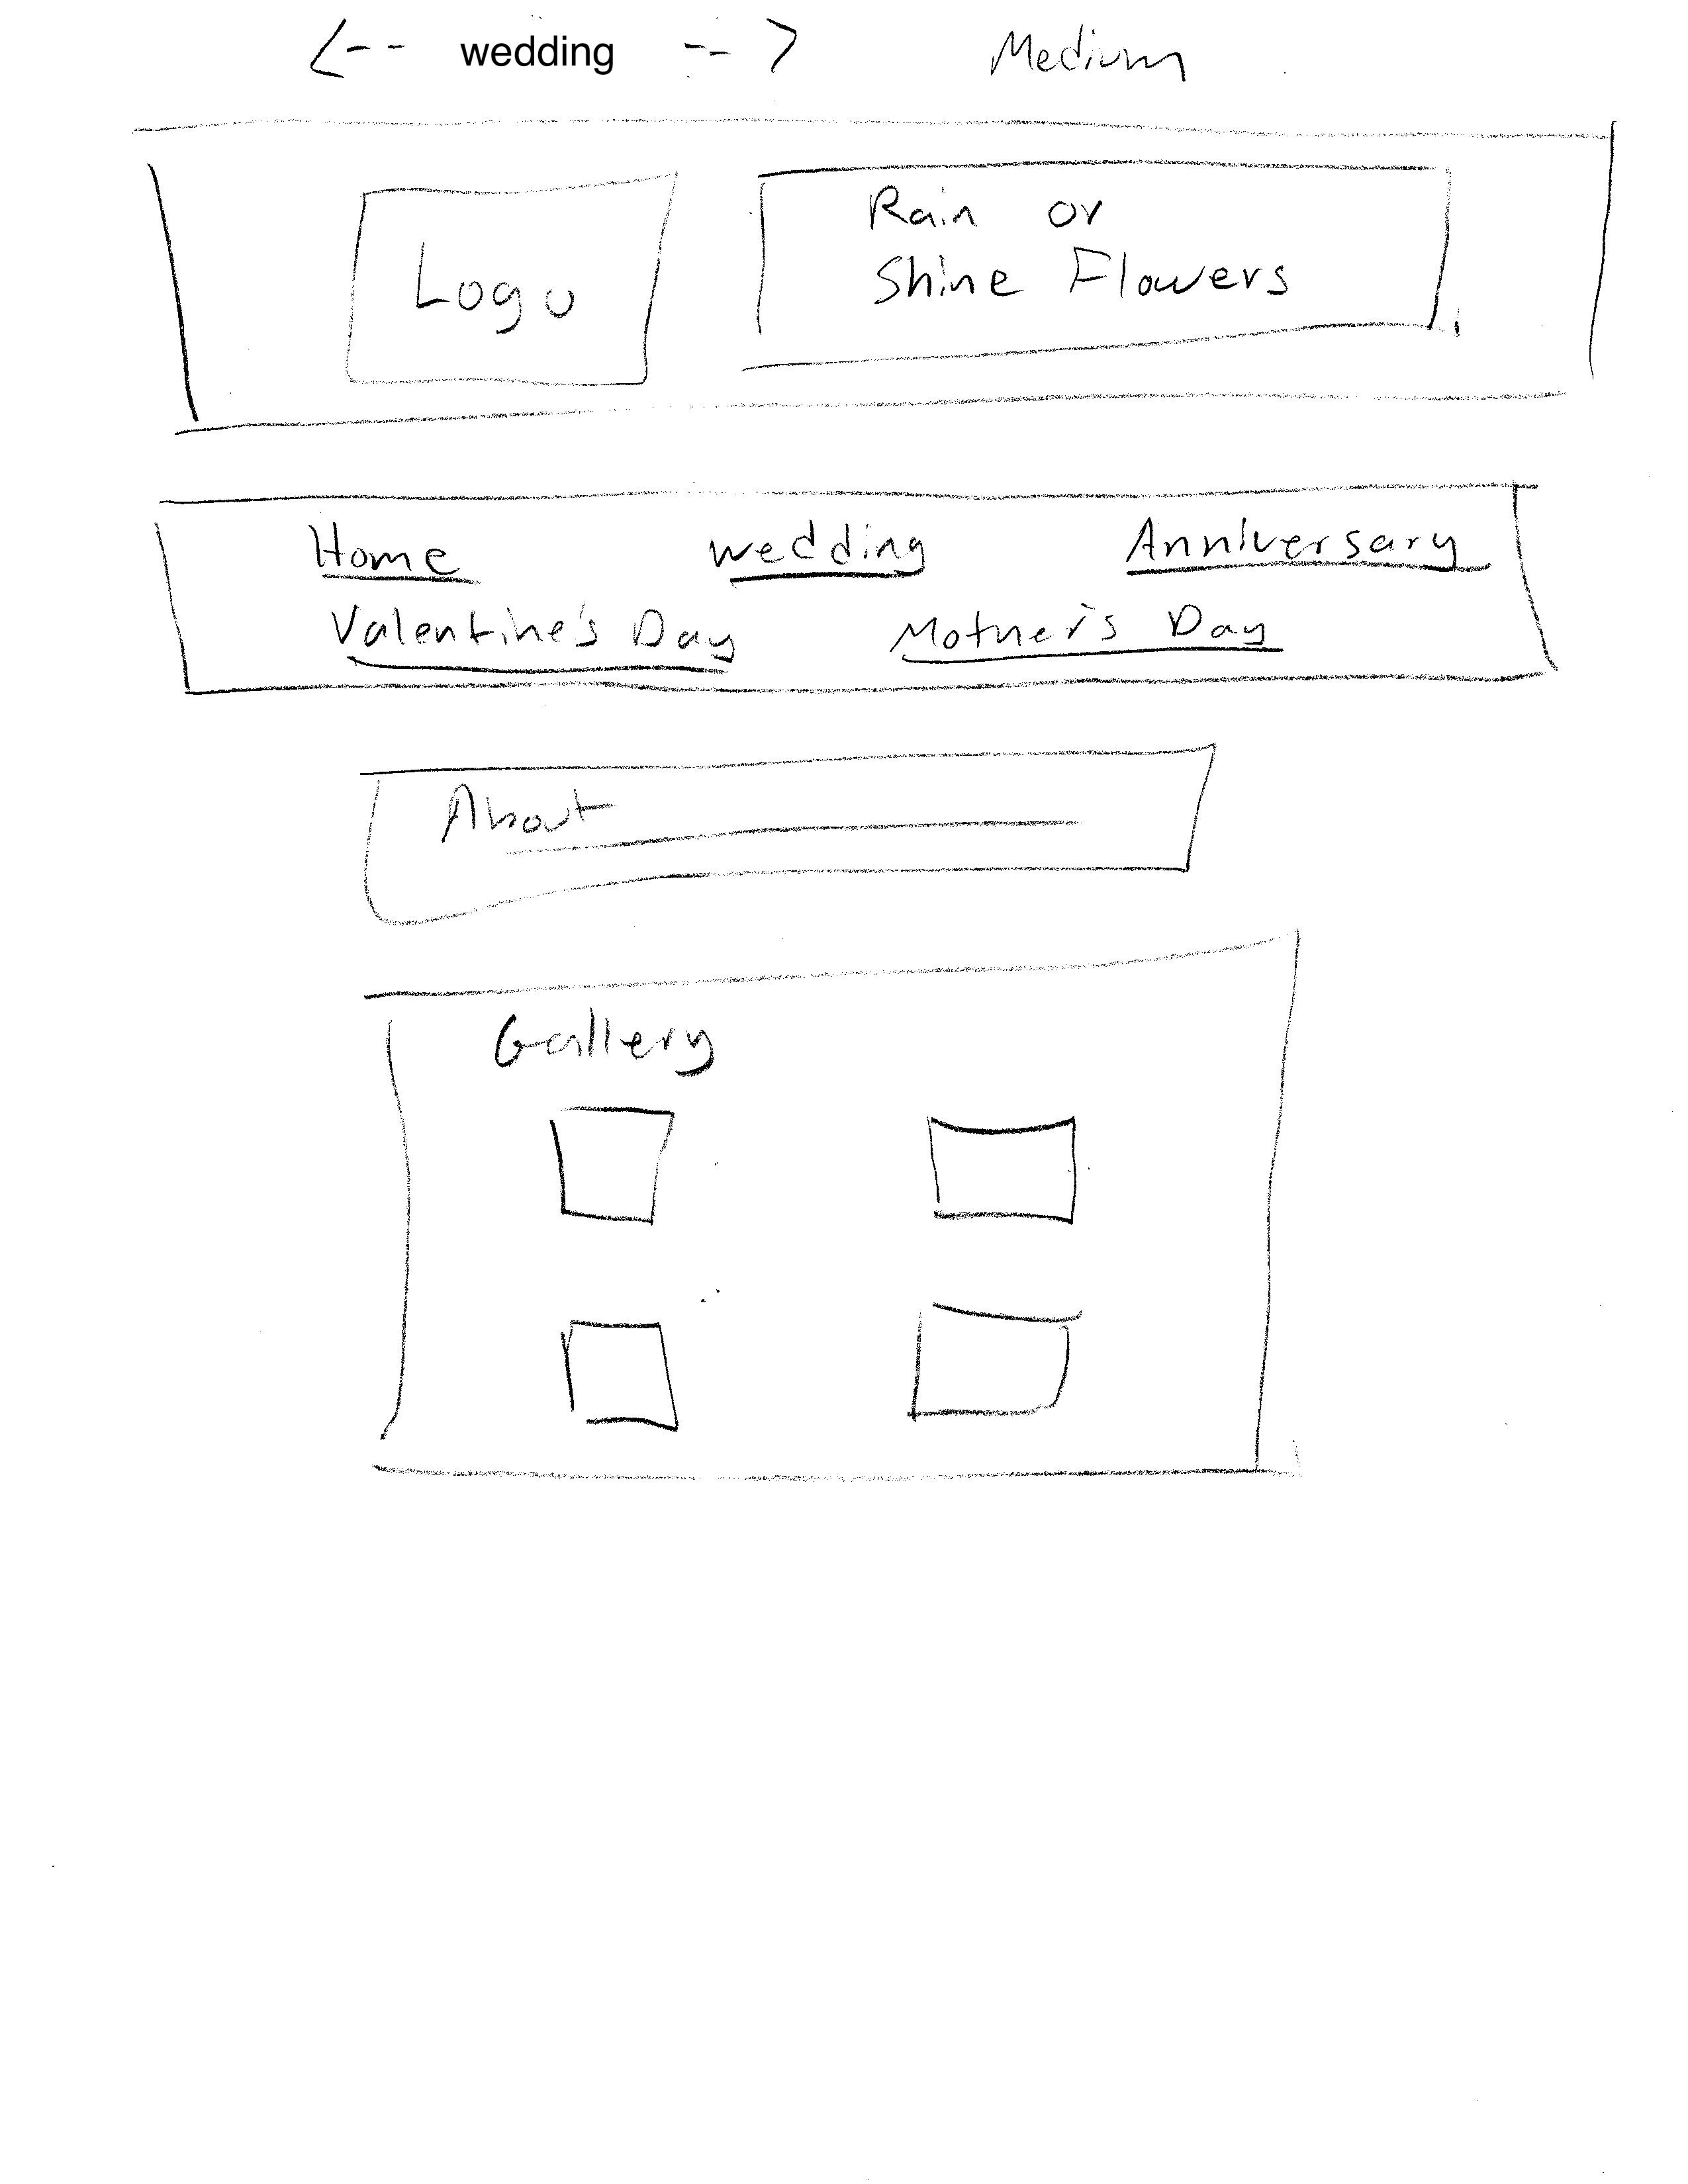 <-- wedding --> Medium
Logo
Rain or
Shine Flowers
Home wedding Anniversary
Valentine's Day Mother's Day
About
Gallery